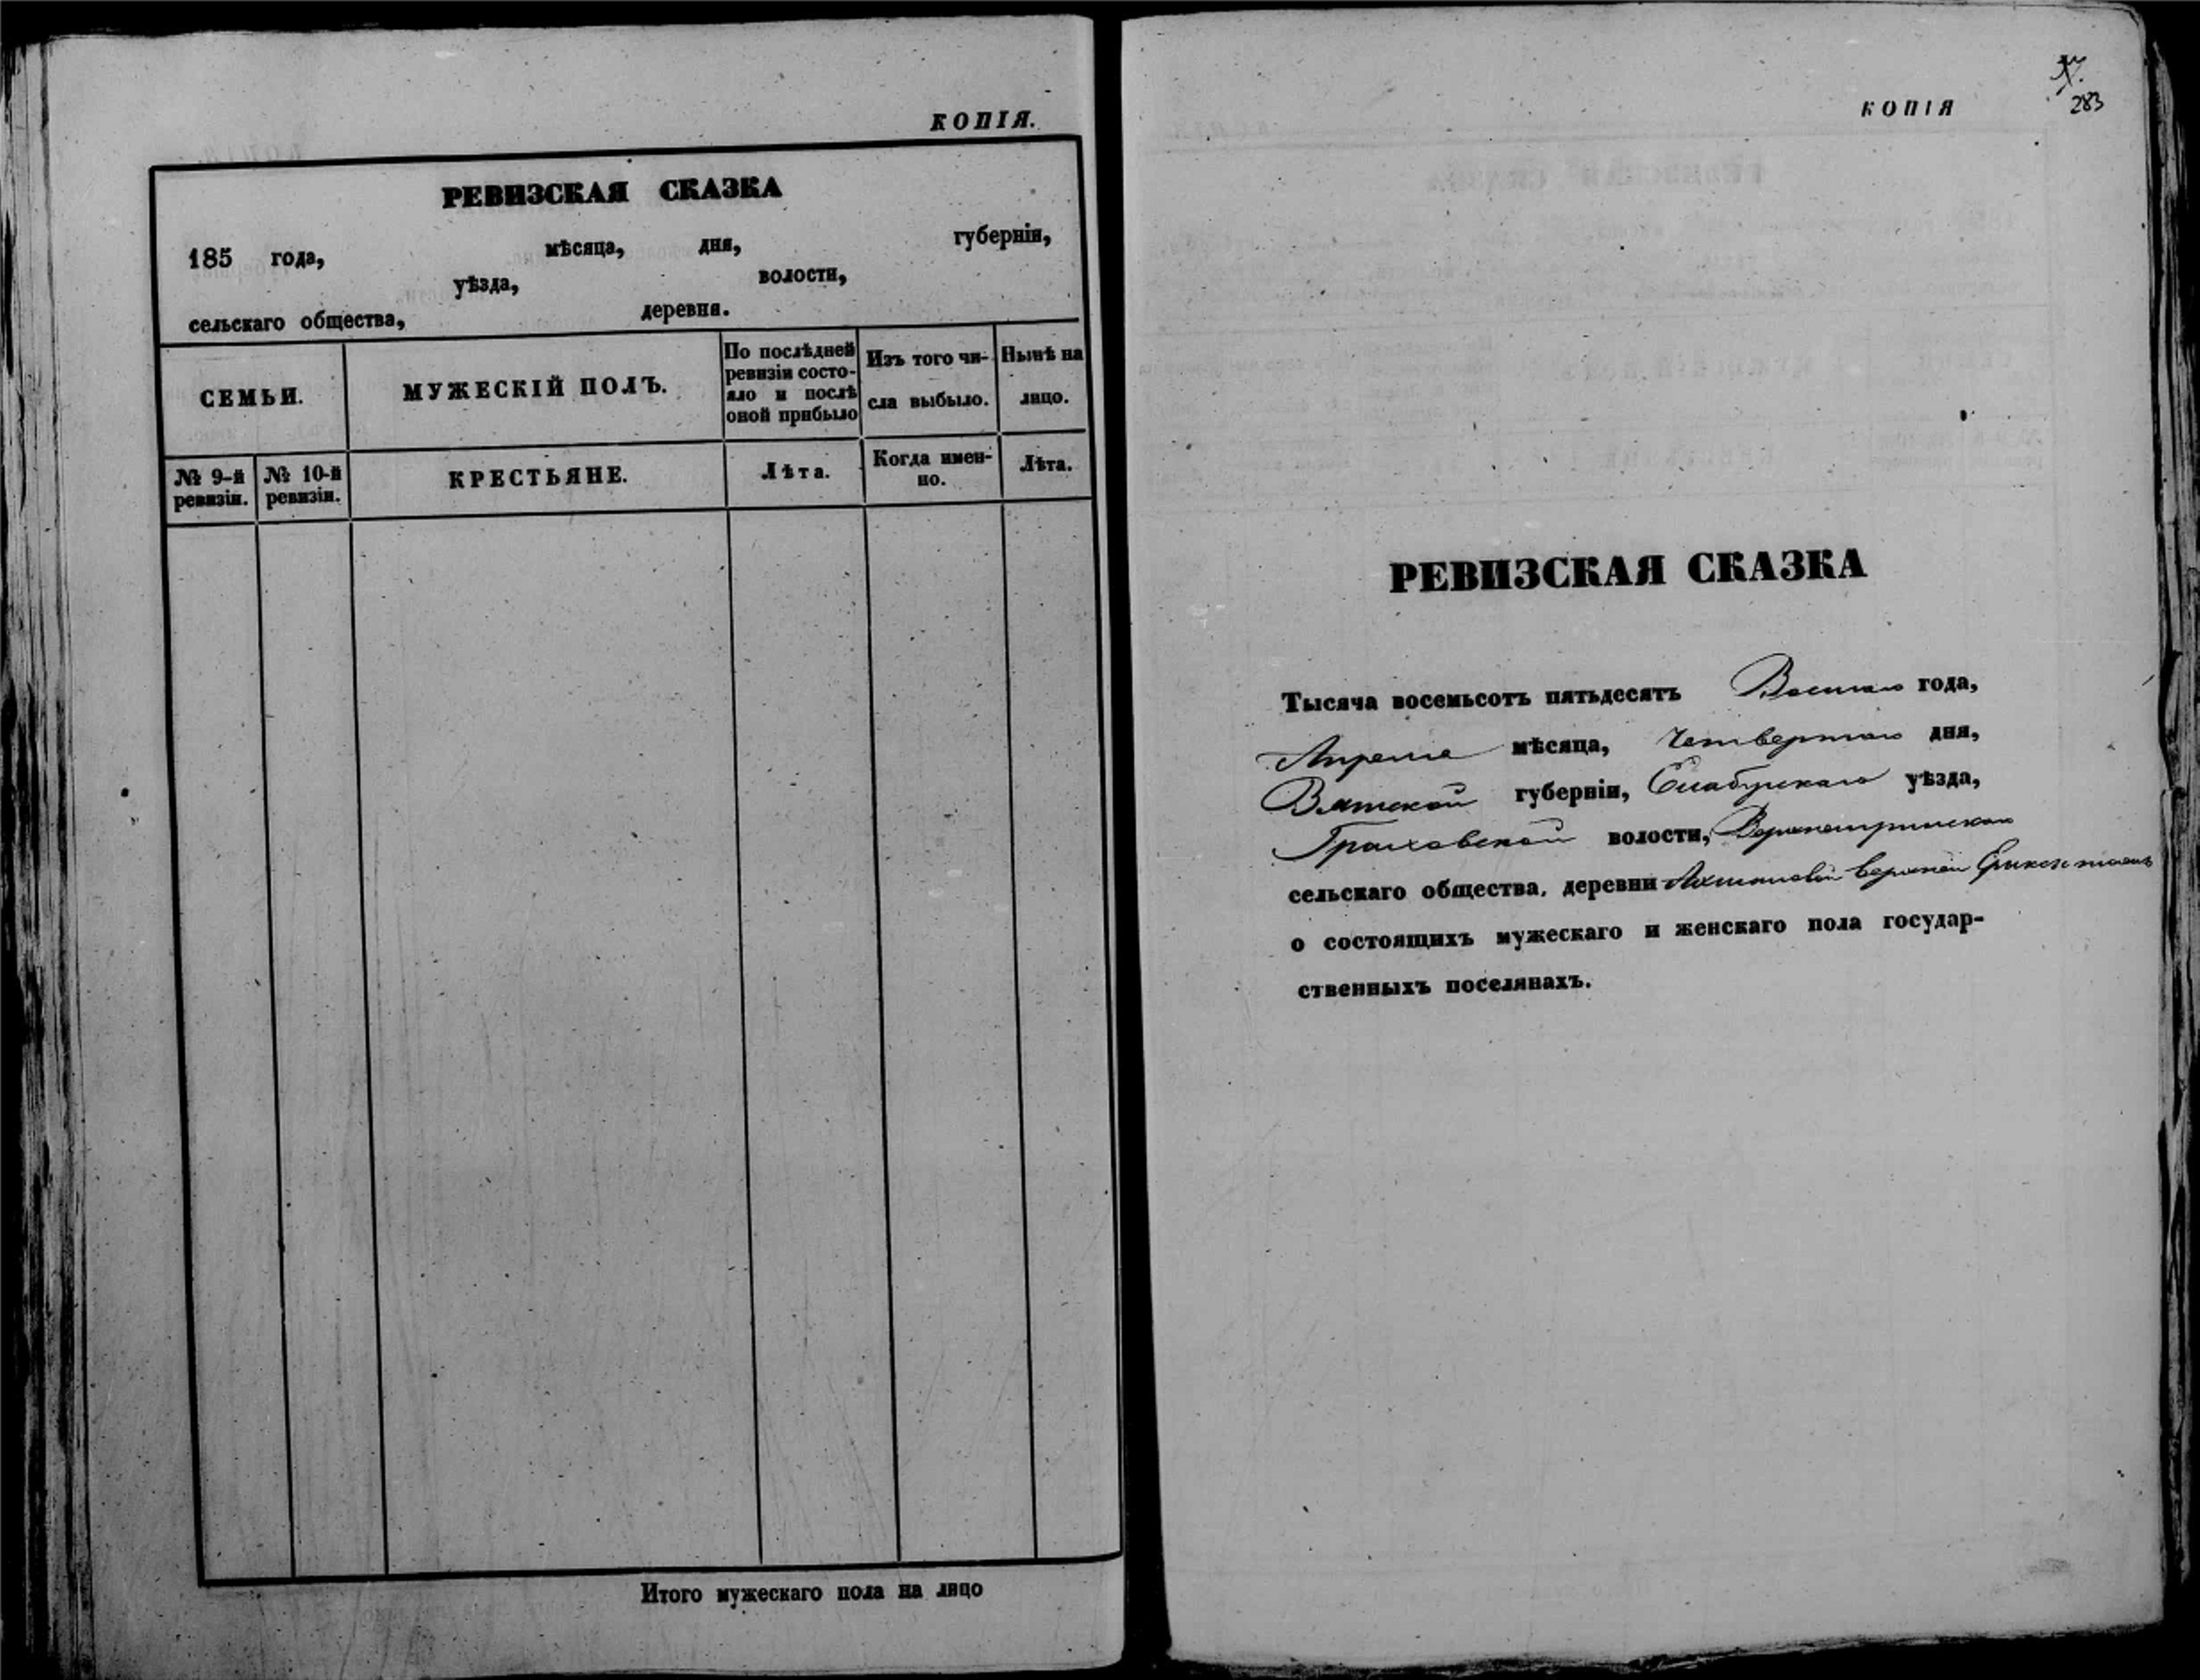 КОПІЯ.
РЕВИЗСКАЯ СКАЗКА
185 года, мѣсяца, дня, губерніи,
уѣзда, волости,
сельскаго общества, деревни.
СЕМЬИ.
МУЖЕСКІЙ ПОЛЪ.
По послѣдней
ревизіи состо-
яло и послѣ
оной прибыло
Изъ того чи-
сла выбыло.
Нынѣ на
лицо.
№ 9-й
ревизіи.
№ 10-й
ревизіи.
КРЕСТЬЯНЕ.
Лѣта.
Когда имен-
но.
Лѣта.
Итого мужескаго пола на лицо
283
КОПІЯ
РЕВИЗСКАЯ СКАЗКА
Тысяча восемьсотъ пятьдесятъ Восьмаго года,
Апреля мѣсяца, Четвертаго дня,
Вятской губерніи, Елабугскаго уѣзда,
Граховской волости,
сельскаго общества, деревни верхней
о состоящихъ мужескаго и женскаго пола государ-
ственныхъ поселянахъ.